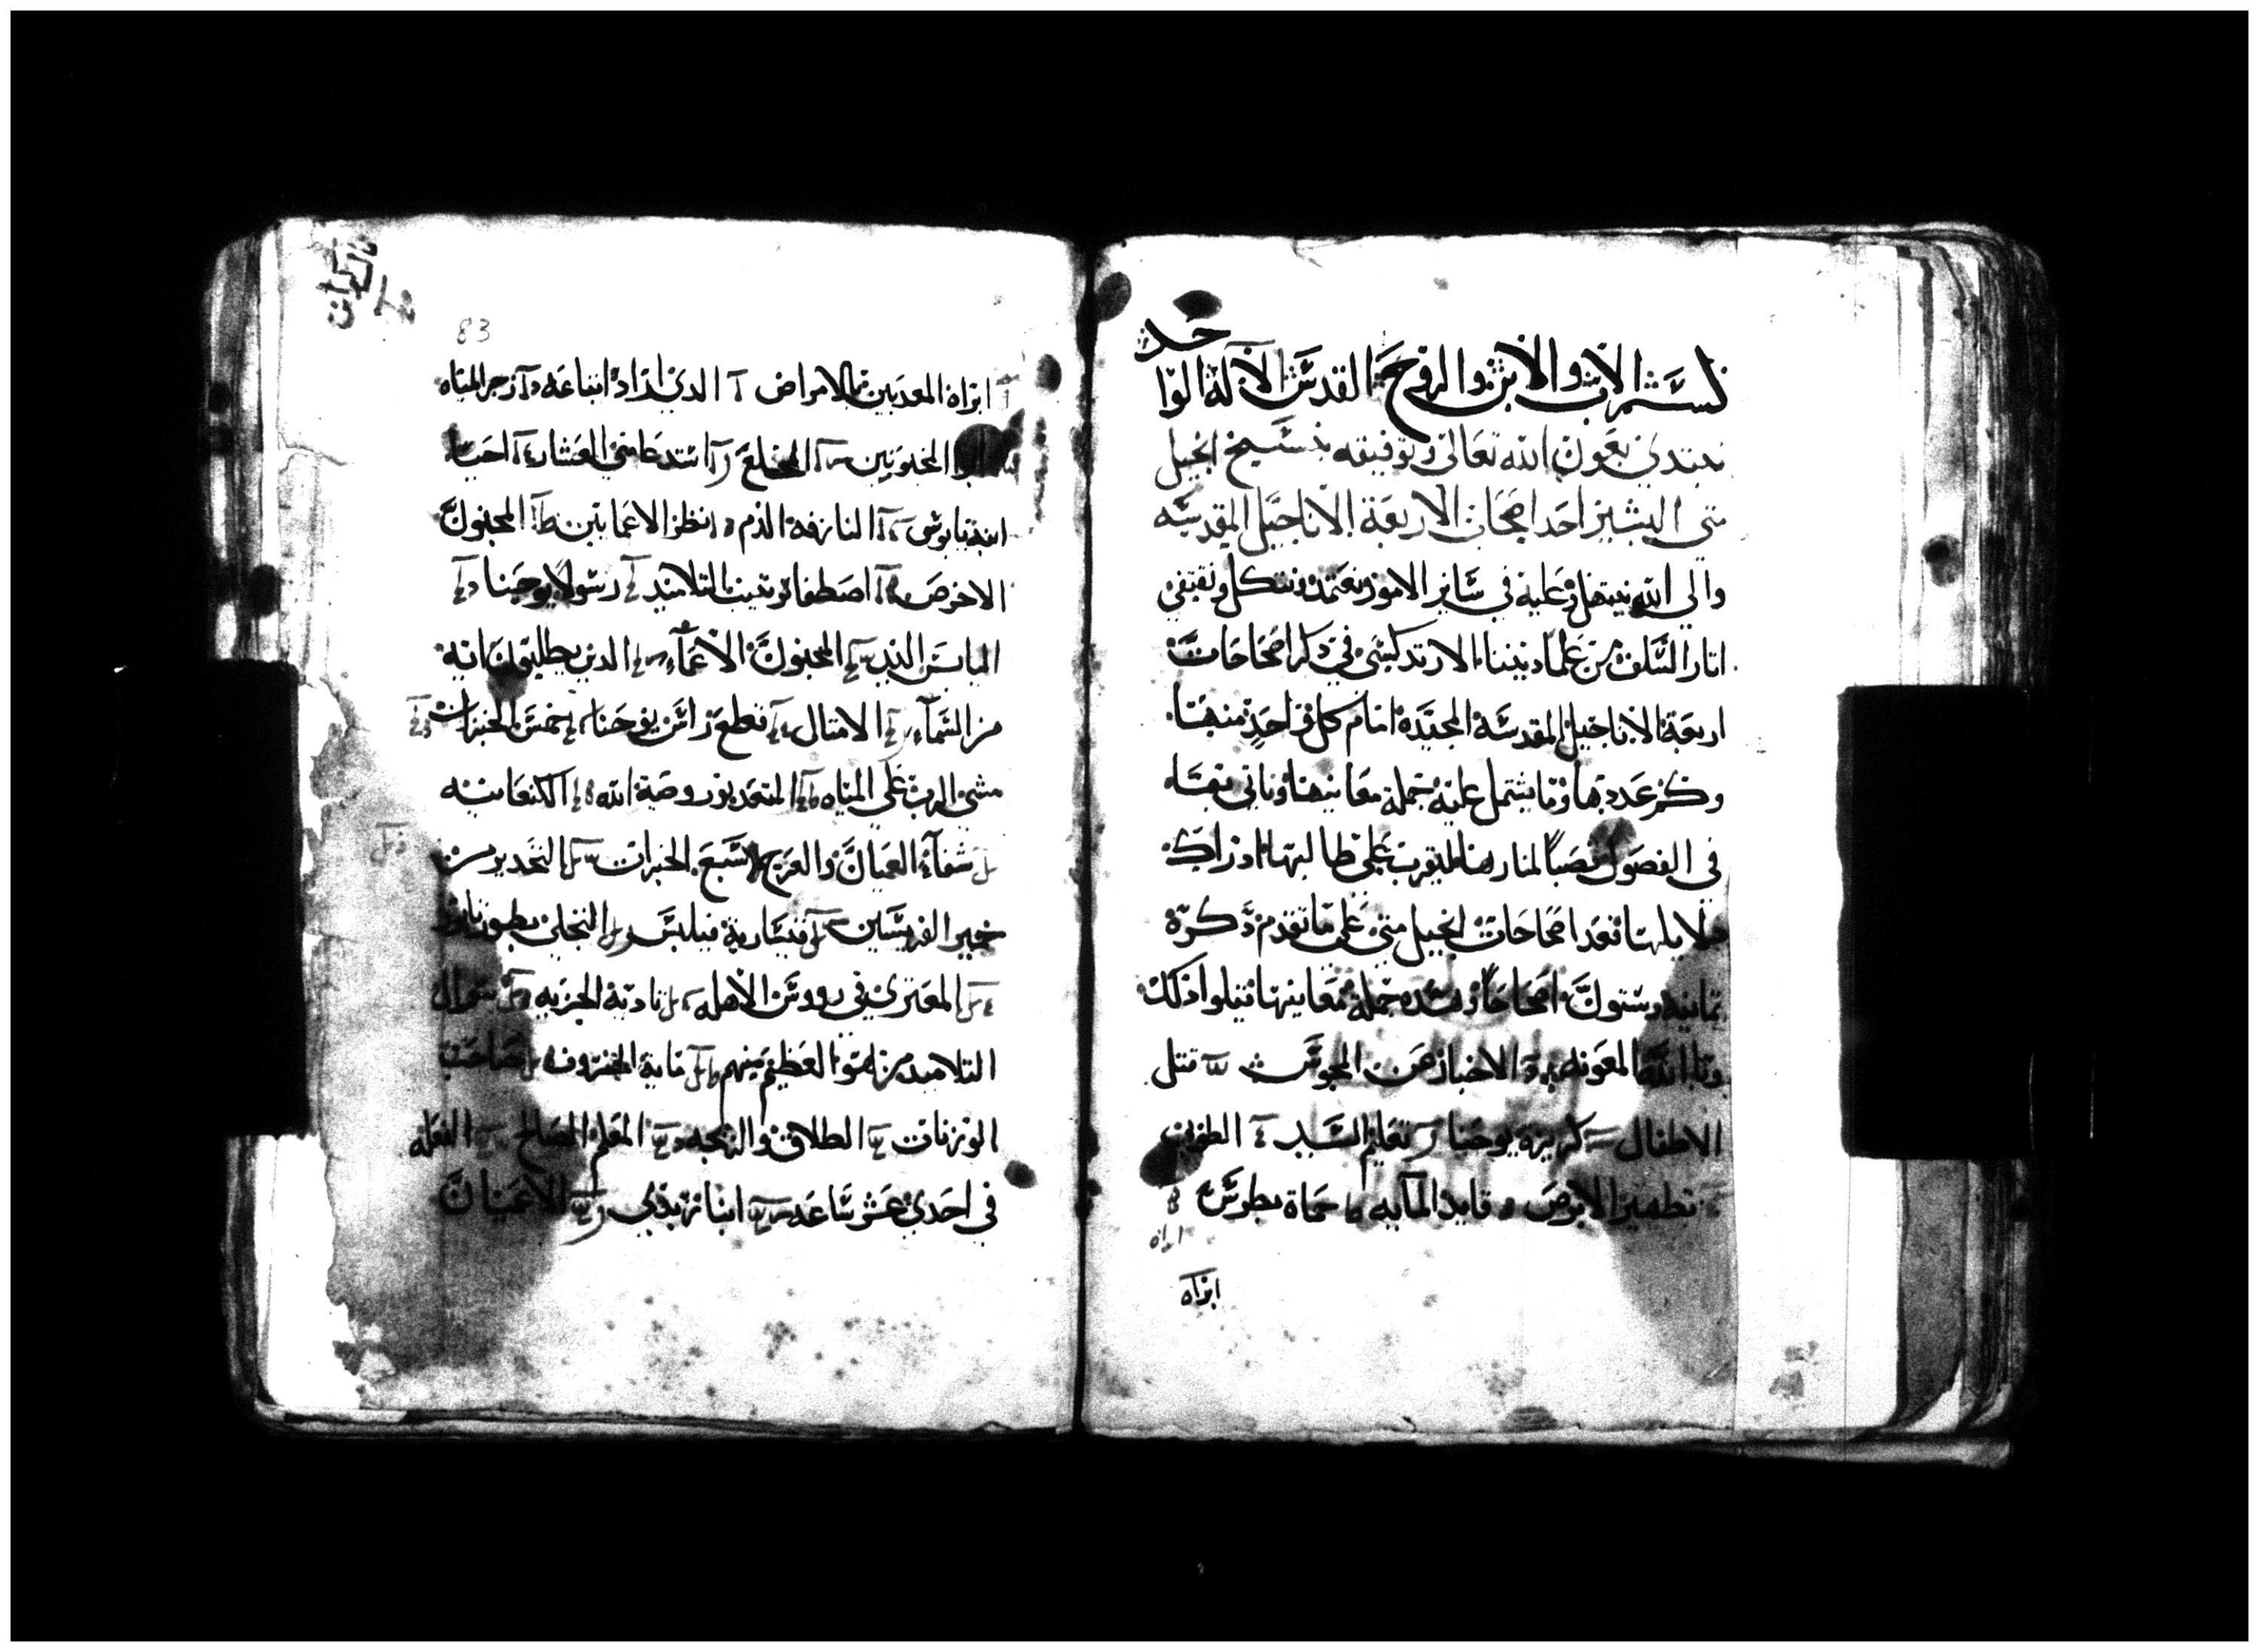 بسم الاب والابن والروح القدس الاله الوا
حد
نبتدي بعون الله تعالى وتوفيقه بنسيخ انجيل
متي البشير احد اصحاب الاربعة الاناجيل المقدسه
والي الله نبتهل وعليه في ساير الامور نعتمد ونتكل ونقتفي
اثار السلف من علما ديننا الارتدكسي في ذكر اصحاحات
اربعة الاناجيل المقدسة المجيده امام كل واحد منها
وذكر عددها وما يشتمل عليه جملة معانيها وناتي بها
في الفصول نصبا لمنارها ليقرب على طالبها ادراك
فعدد اصحاحات انجيل متي على ما تقدم ذكره
ثمانيه وستون اصحاحا وهذه جملة معانيها فيتلوا ذلك
وبالله المعونه الاخبار عن المجوس قتل
الاطفال كريزة يوحنا تعليم السيد الطوبي
تطهير الابرص قايد المايه حماة بطرس
ابراه
83
ابراه المعدبين بالامراض الدي اراد اتباعه زجر المياه
المجنونين المخلع استدعا متي العشار احيا
ابنة يايرس النازفة الدم نظر الاعمايين المجنون
الاخرص اصطفا وترتيب التلاميد رسولا يوحنا
اليابس اليد المجنون الاعما الدين يطلبون ايه
من السماء الامثال قطع راس يوحنا خمس الخبزات
مشي الرب على المياه المتعديون وصية الله الكنعانيه
شفاء العميان والعرج السبع الخبزات التحدير من
خمير الفريسين قيسارية فيلبس التجلي بطور تابور
المعتري في رووس الاهله تادية الجزيه سوال
التلاميد من هو العظيم منهم ماية الخروف صاحب
الوزنات الطلاق والزيجه المعلم الصالح الفعله
في احدي عشر ساعه ابنا زبدي الاعميان